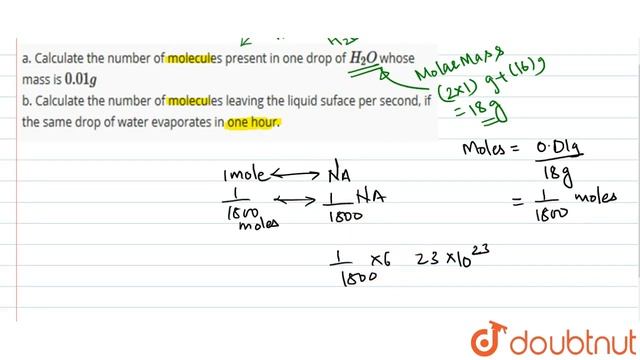 H₂O
a. Calculate the number of molecules present in one drop of H₂O whose
mass is 0.01g
b. Calculate the number of molecules leaving the liquid suface per second, if
the same drop of water evaporates in one hour.
Molar Mass
(2×1) g + (16) g
= 18g
Moles = 0.01g / 18g
= 1/1800 moles
1 mole ⟷ NA
1/1800 moles ⟷ 1/1800 NA
1/1800 ×6 23 ×10²³
doubtnut